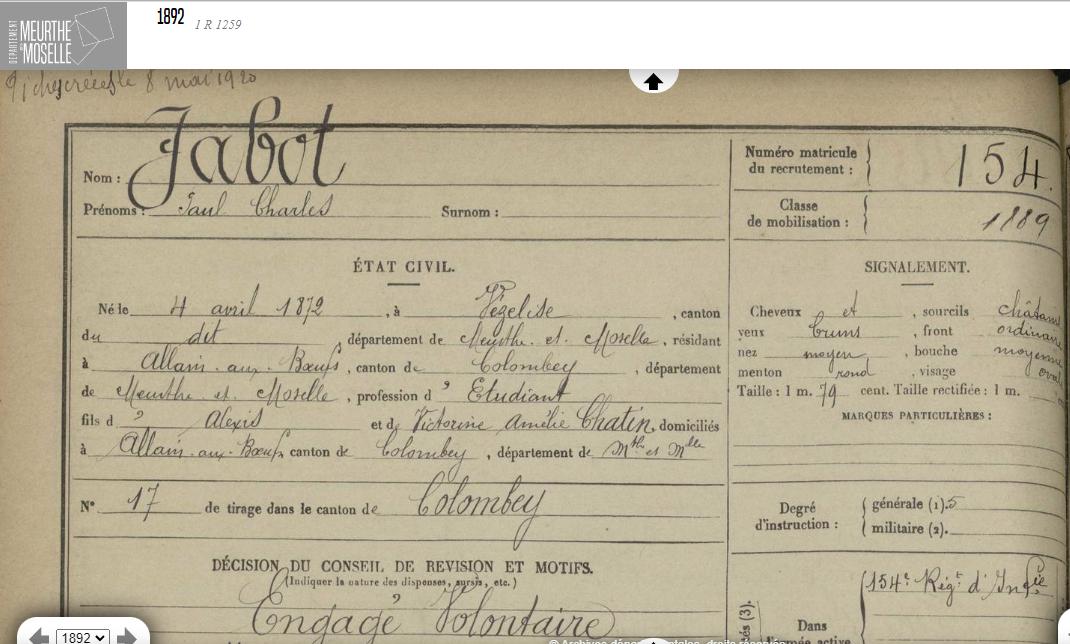 DÉPARTEMENT MEURTHE & MOSELLE
1892 1 R 1259
le 8 mai 1920
Nom : Jabot
Prénoms : Paul Charles Surnom :
Numéro matricule du recrutement : 154.
Classe de mobilisation : 1889
ÉTAT CIVIL.
Né le 4 avril 1872, à Vézelise, canton
du dit, département de Meurthe. et. Moselle, résidant
à Allain. aux. Bœufs, canton de Colombey, département
de Meurthe. et. Moselle, profession d' Etudiant
fils d' Alexis et de Victorine Amélie Chatin, domiciliés
à Allain. aux. Bœufs, canton de Colombey, département de Mthe et Mlle
N° 17 de tirage dans le canton de Colombey
DÉCISION DU CONSEIL DE REVISION ET MOTIFS.
(Indiquer la nature des dispenses, sursis, etc.)
Engagé Volontaire
SIGNALEMENT.
Cheveux et, sourcils châtains
yeux bruns, front ordinaire
nez moyen, bouche moyenne
menton rond, visage ovale
Taille : 1 m. 79 cent. Taille rectifiée : 1 m.
MARQUES PARTICULIÈRES :
Degré d'instruction : générale (1). 5
militaire (2).
154e Régt d'Infie
Dans
armée active
1892
© Archives départementales, droits réservés